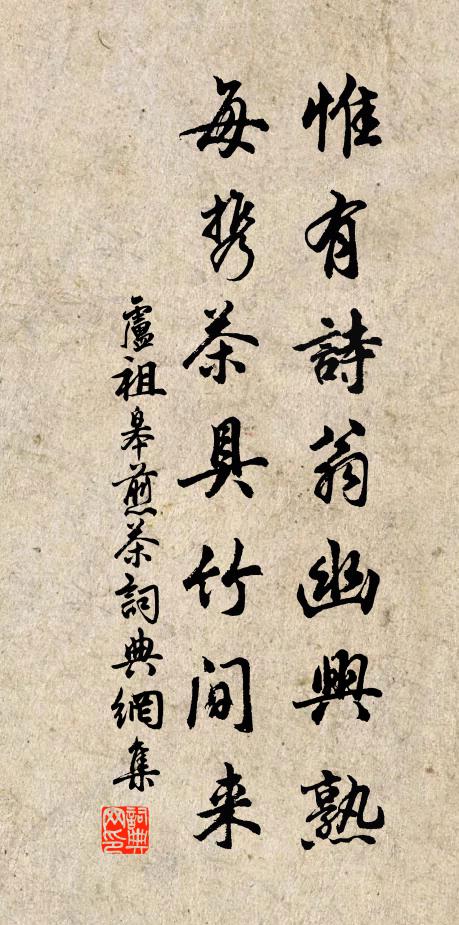 惟有詩翁幽興熟
每携茶具竹间来
盧祖皋煎茶詞典網集
詞典网印